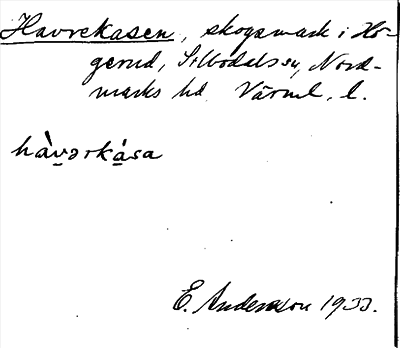 Havrekasen, skogsmark i Hö-
gerud, Silbodals sn, Nord-
marks hd Värml. l.
hàvərkása
E. Andersson 1933.